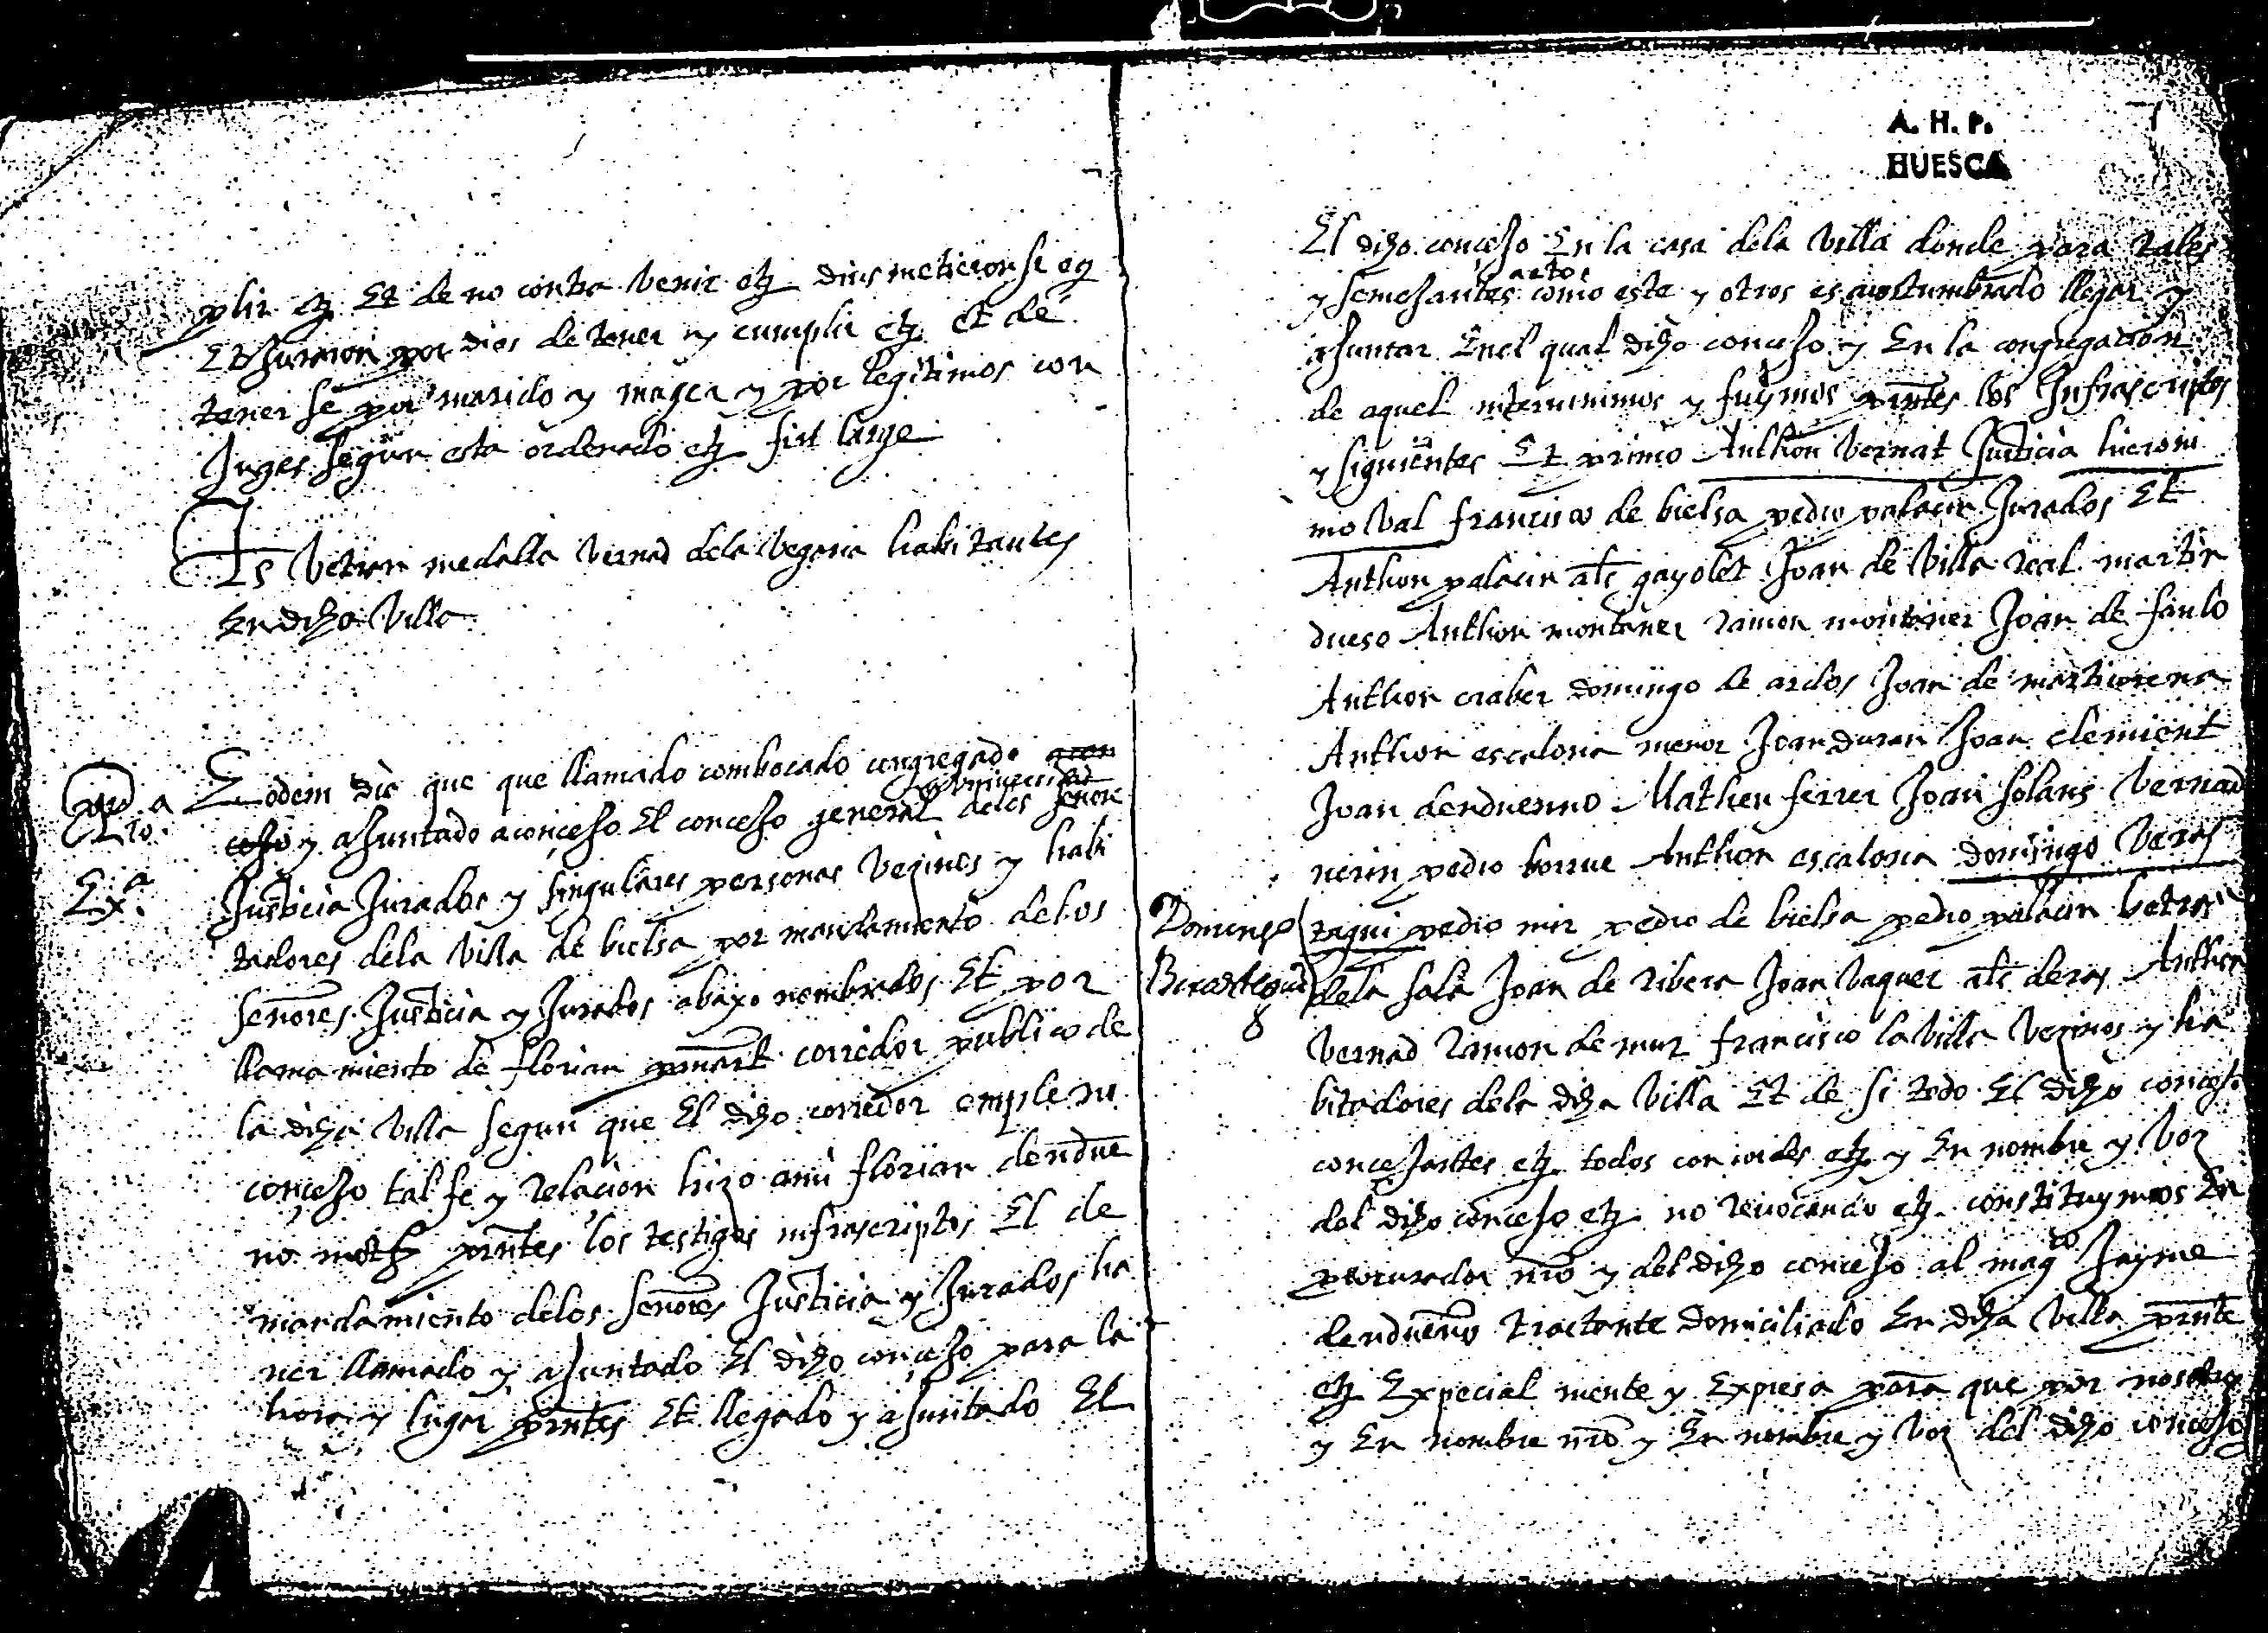 plir etz Et de no contra benir etz dius meticionsi eq
Et Juraron por dios de tener y cumplir etz et de
tener se por marido y muger y por legitimos con
Juges segun esta ordenado etz fiat large
Ts betran medalla bernad dela begaria habitantes
En diha billa
Eodem die que que llamado combocado congregado
y ajuntado a concejo El concejo general delos señore
Ex.ª
Justicia Jurados y singulares personas bezinos y habi
tadores dela billa de bielsa por mandamiento delos
señores Justicia y Jurados abaxo nombrados Et por
llamamiento de florian corredor publico de
la diha billa segun que El diho corredor en pleno
concejo tal fe y relacion hizo a mi florian dendue
no notº pntes los testigos infrascriptos El de
mandamiento delos señores Justicia y Jurados ha
ver llamado y ajuntado El diho concejo para la
hora y lugar pntes Et llegado y ajuntado El
A. H. P.
HUESCA
El diho concejo En la casa dela billa donde para tales
actos
y semejantes como este y otros es acostumbrado llegar y
ajuntar Enel qual diho concejo y En la congregacion
de aquel interuinimos y fuymos pntes los Infrascriptos
y siguientes Et primo Anthon bernat Justicia hieroni
mo bal francisco de bielsa pedro palacin Jurados Et
Anthon palacin als gayolet Joan de billa real martin
dueso Anthon montaner ramon montaner Joan de fanlo
Anthon craber domingo de arcos Joan de
Anthon escalona menor Joan duran Joan clemient
Joan denduenno Matheu ferrer Joan solans bernad
nerin pedro borrue Anthon escalona domingo beras
Domingo
tegui pedro mir pedro de bielsa pedro palacin betran
dela sala Joan de ribera Joan baquer als deras Anthon
bernad Ramon de mur francisco la billa bezinos y ha
bitadores dela diha billa Et de si todo El diho concejo
concejantes etz todos concordes etz y En nombre y boz
del diho concejo etz no reuocando etz constituymos En
procurador nro y del diho concejo al magco Jayme
denduenno tractante domiciliado En diha billa pnte
etz Expecial mente y Expresa para que por nosotros
y En nombre nro y En nombre y boz del diho concejo